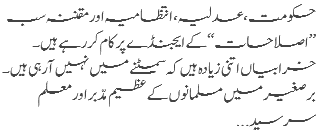 حکومت، عدلیہ، انتظامیہ اور مقننہ سب
”اصلاحات“ کے ایجنڈے پر کام کر رہے ہیں۔
خرابیاں اتنی زیادہ ہیں کہ سمٹنے میں نہیں آ رہی ہیں۔
برصغیر میں مسلمانوں کے عظیم مدبر اور معلم
سرسید...